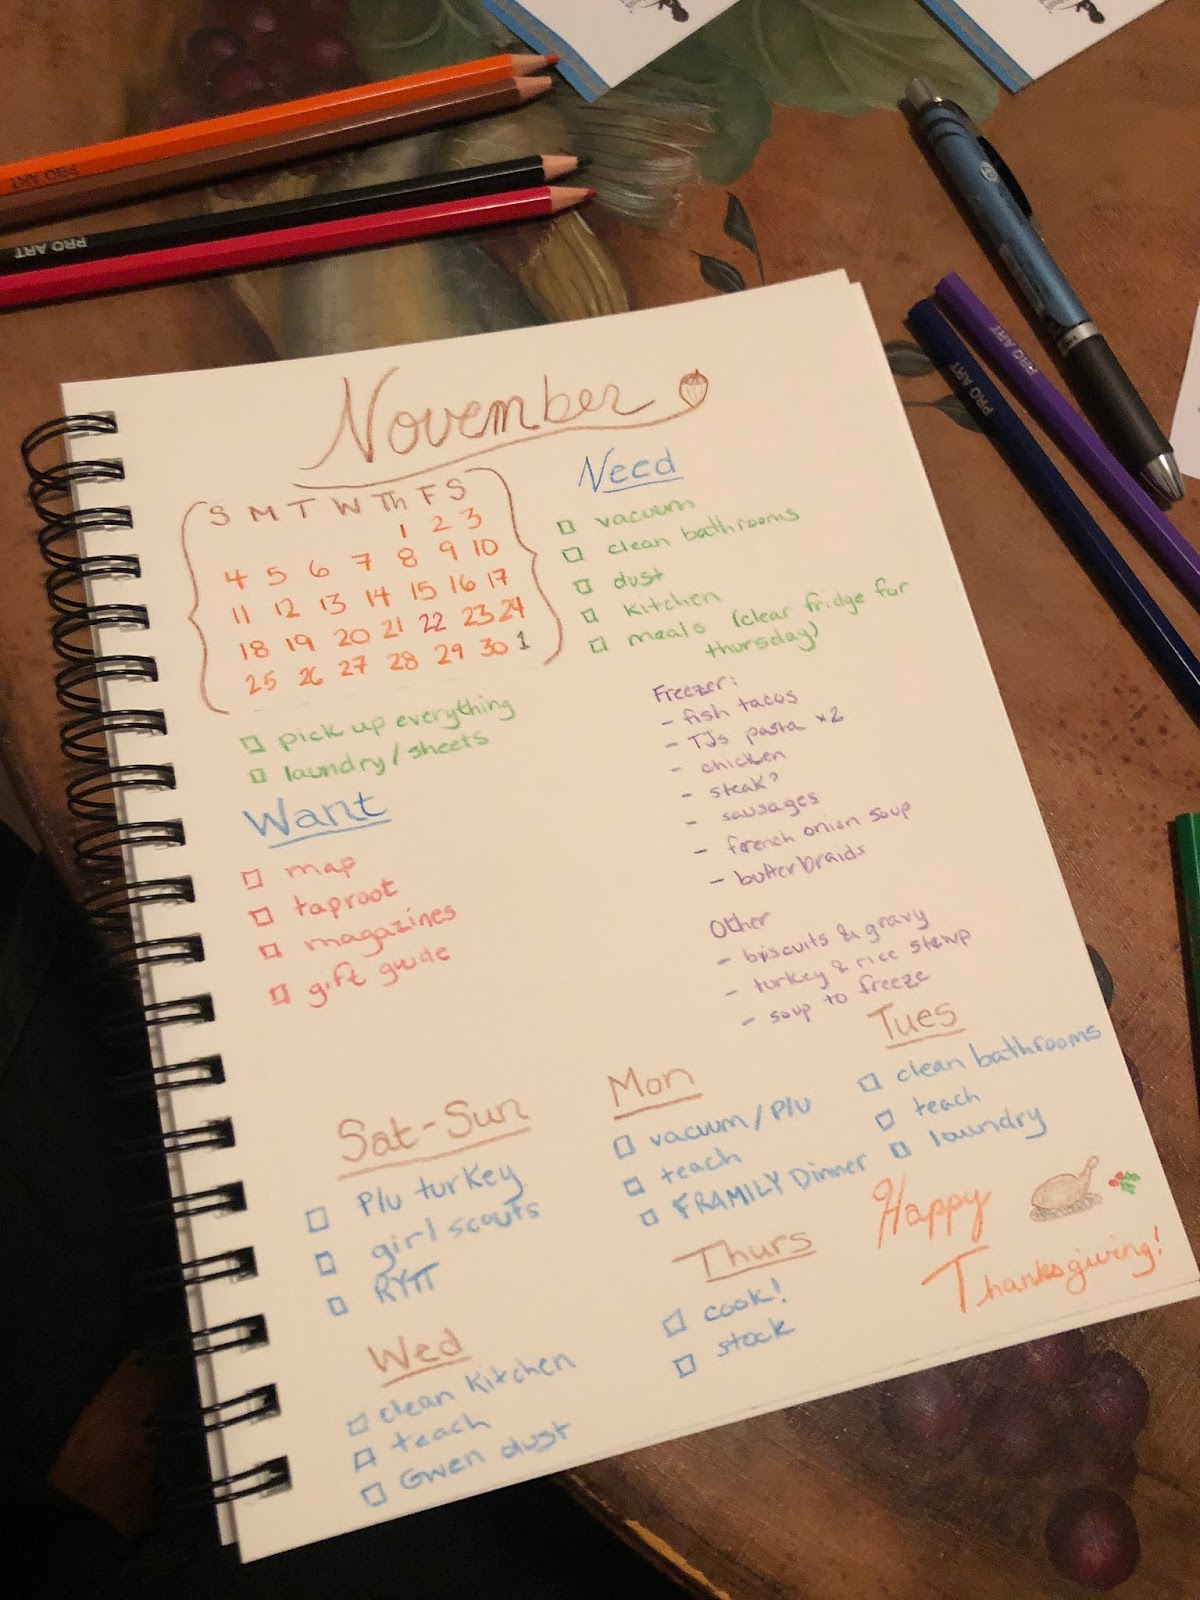 PRO ART
PRO ART
PRO ART
PRO ART
November
S M T W Th F S
1 2 3
4 5 6 7 8 9 10
11 12 13 14 15 16 17
18 19 20 21 22 23 24
25 26 27 28 29 30 1
pick up everything
laundry/sheets
Need
vacuum
clean bathrooms
dust
kitchen
meals (clear fridge for
thursday)
Freezer:
- fish tacos
- TJs pasta x2
- chicken
- steak?
- sausages
- french onion soup
- butter braids
Other
- biscuits & gravy
- turkey & rice
- soup to freeze
Want
map
taproot
magazines
gift guide
Sat-Sun
P/u turkey
girl scouts
Mon
vacuum/P/U
teach
FRAMILY Dinner
Tues
clean bathrooms
teach
laundry
Wed
clean kitchen
teach
Gwen dust
Thurs
cook!
stock
Happy
Thanksgiving!